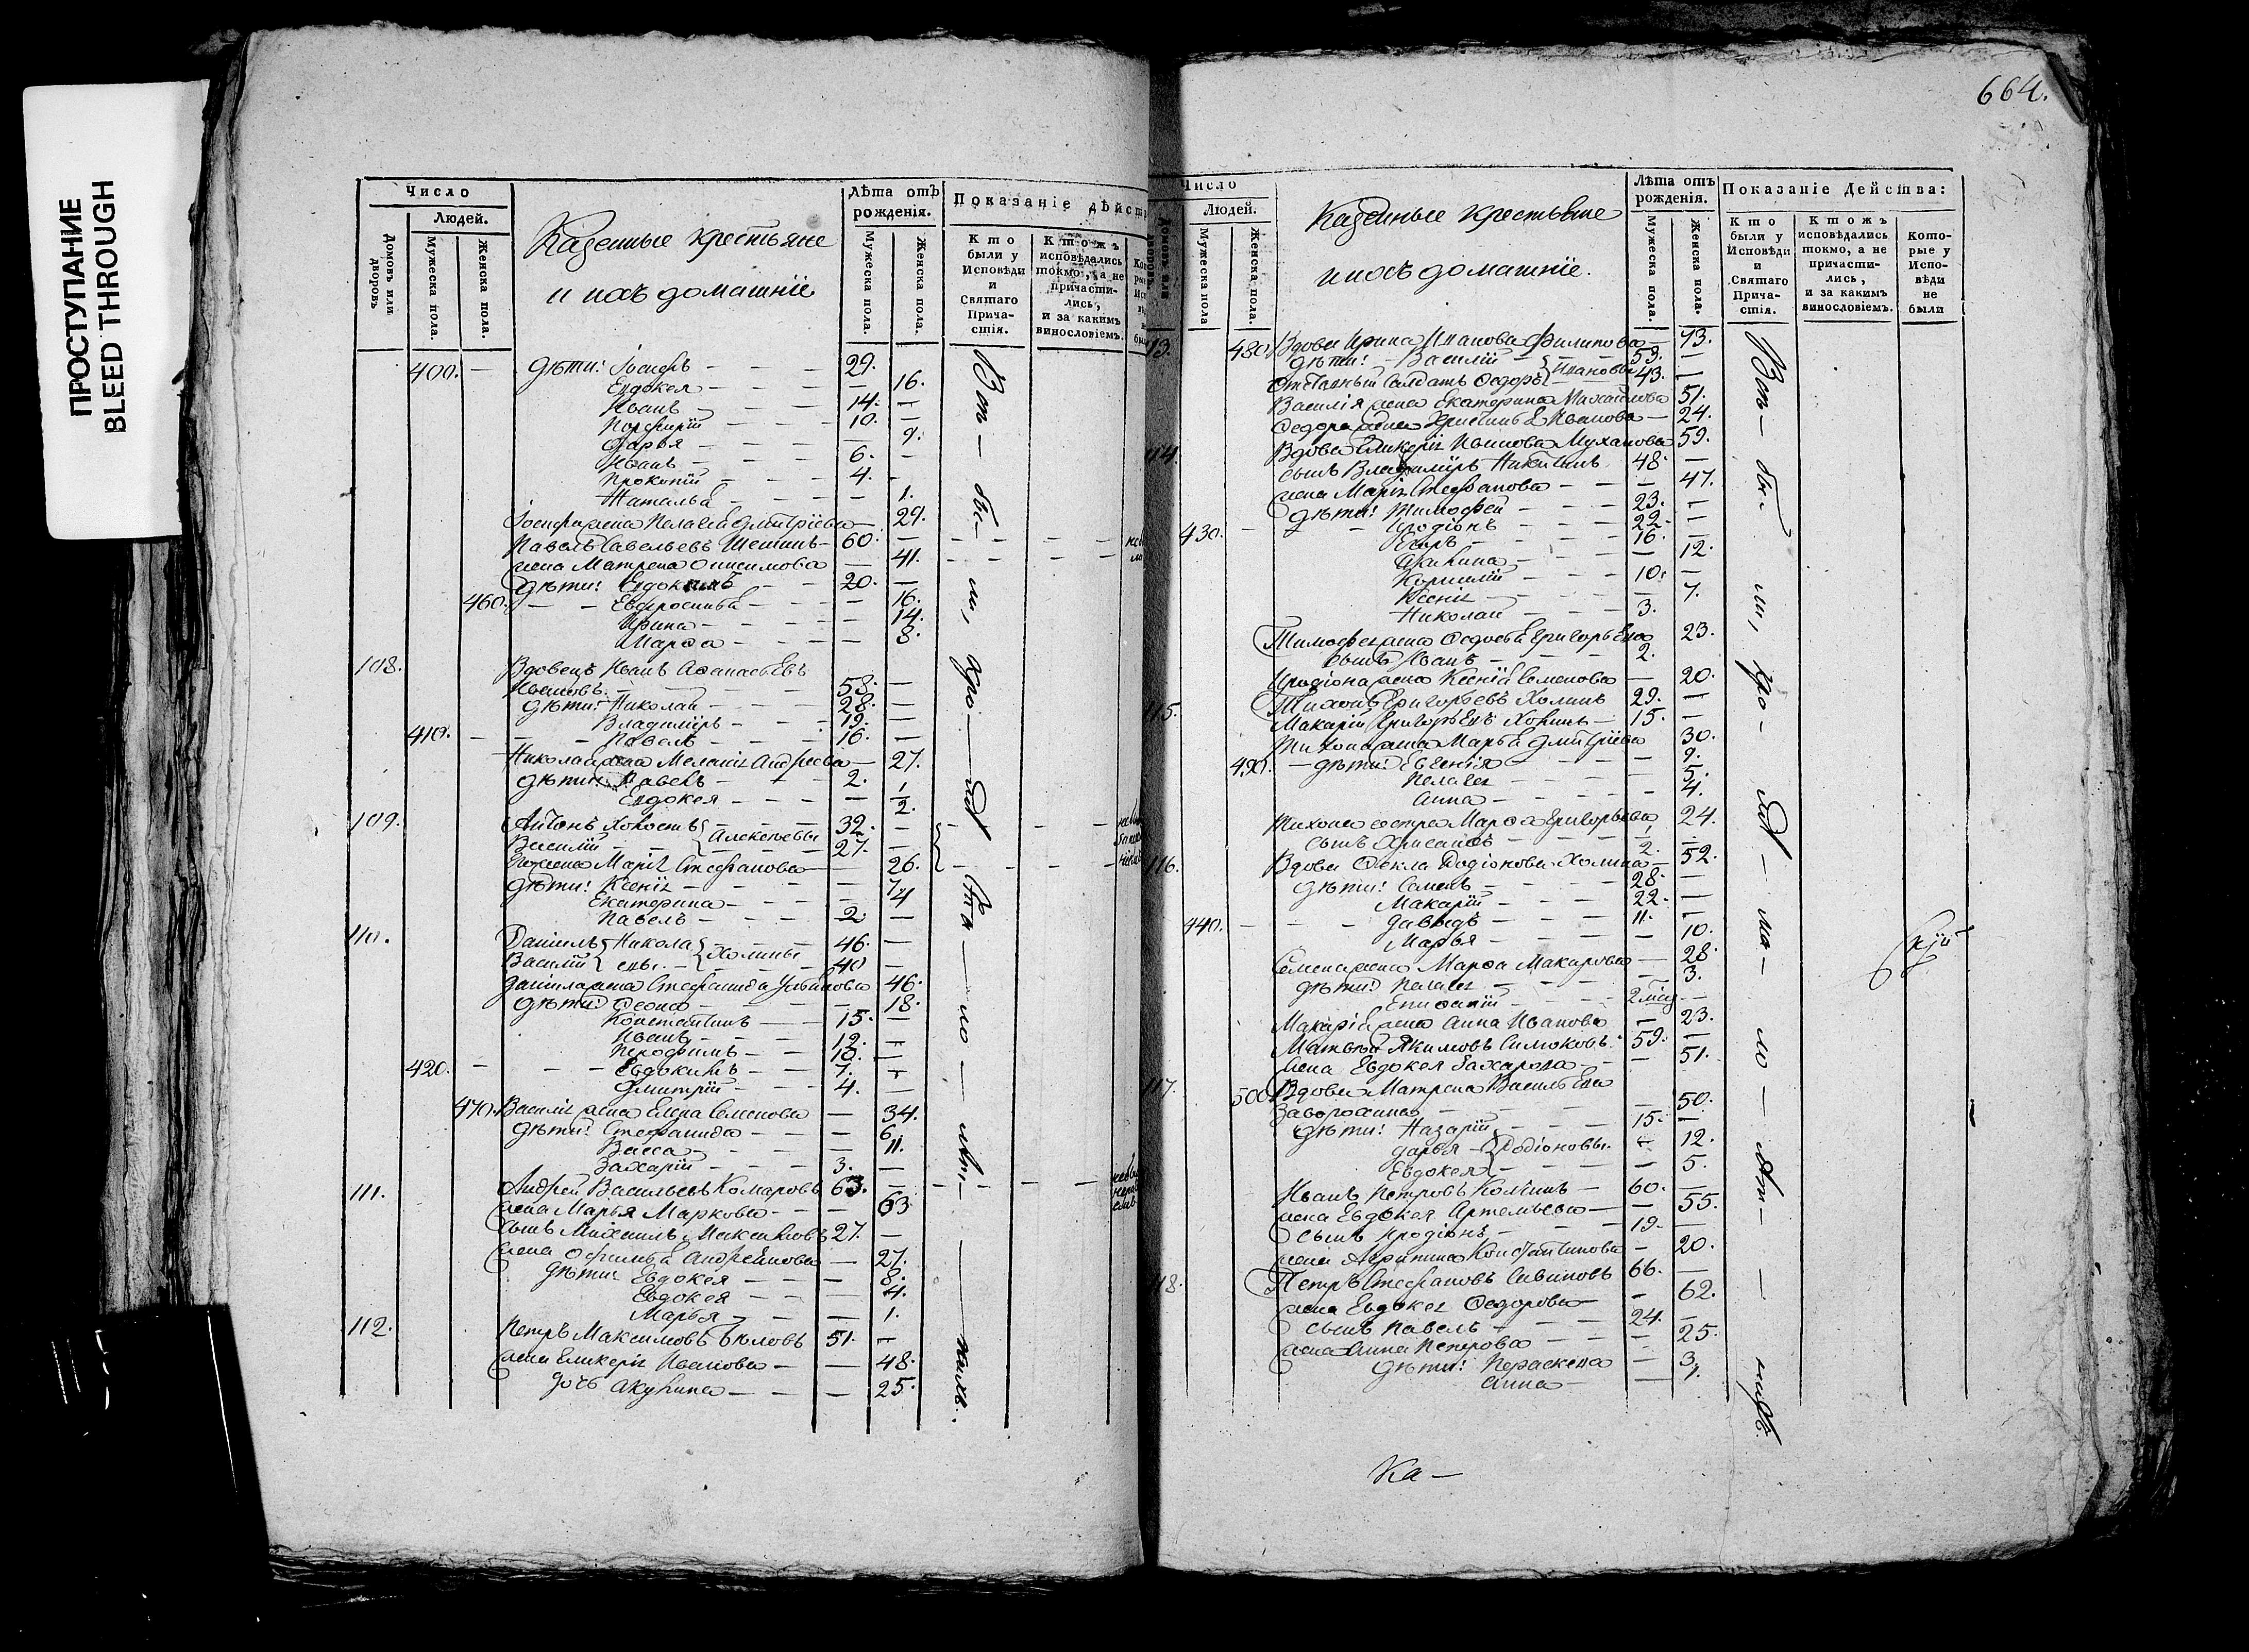 ПРОСТУПАНИЕ
BLEED THROUGH
Число
Людей.
Домовъ или дворовъ
Мужеска пола.
Женска пола.
Казенные крестьяне
и ихъ домашніе
Лѣта отъ рожденія.
Мужеска пола.
Женска пола.
Показаніе дѣйст
Кто были у Исповѣди и Святаго Прича- стія.
Ктожъ исповѣдались токмо, а не причасти- лись, и за какимъ винословіемъ.
400. — дѣти: Іосифъ — 29.
Евдокея — 16.
Иванъ — 14. —
Порфирій — 10.
Дарья — 9.
Иванъ — 6. —
Прокопій — 4. —
Наталья — 1.
Іосифа жена Пелагея Дмитріева — 29.
Павелъ Савельевъ — 60. —
жена Матрена Онисимова — 41.
дѣти: Евдокимъ — 20. —
460. — Евфросинья — 16.
Ирина — 14.
Марѳа — 8.
108. Вдовецъ Иванъ Аѳанасьевъ
58. —
дѣти: Николай — 28. —
Владимиръ — 19. —
410. — Павелъ — 16. —
Николая жена Меланія Андреева — 27.
дѣти: Павелъ — 2.
Евдокея — 1/2.
109. Антонъ Холостъ Алексѣевы 32. —
Василій — 27. —
жена Марія Стефанова — 26.
дѣти: Ксенія — 7.
Екатерина — 4
Павелъ — 2 —
110. Даніилъ Никола Холины 46. —
Василій евы. — 40 —
Даніила жена Стефанида Устинова 46.
дѣти: 18.
Константинъ — 15. —
Иванъ — 12. —
Перфилъ — 10. —
420. — Евдокимъ — 7. —
Дмитрій — 4. —
470. Василія жена Елена Семенова — 34.
дѣти: Стефанида — 6.
Васса — 11.
Захарій — 3. —
111. Андрей Васильевъ Комаровъ 63. —
жена Марья Маркова — 63
сынъ Михаилъ 27. —
жена Офимья Андреянова — 27.
дѣти: Евдокея — 8.
Евдокея — 4.
Марья — 1.
112. Петръ Максимовъ Бѣловъ 51. —
жена Гликерія Иванова — 48.
дочь Акулина — 25.
664.
Число
Людей.
Мужеска пола
Женска пола.
Казенные крестьяне
и ихъ домашніе.
Лѣта отъ рожденія.
Мужеска пола.
Женска пола.
Показаніе Действа:
Кто были у Исповѣди и Святаго Прича- стія.
Ктожъ исповѣдались токмо, а не причасти- лись, и за какимъ винословіемъ.
Кото- рые у Испо- вѣди не были
13. 480. Вдова Ирина Иванова Филипова — 73.
дѣти: Василій Ивановы 53. —
Отставный Солдатъ Ѳедоръ 43. —
Василія жена Екатерина Михайлова 51.
Ѳедора жена Христина Иванова — 24.
14. Вдова Гликерія Иванова Муханова 59.
сынъ Владимиръ Никитинъ 48. —
жена Марія Стефанова — 47.
дѣти: Тимофей — 23. —
430. — Иродіонъ — 22. —
Егоръ — 16. —
Акилина — 12.
Корнилій — 10. —
Ксенія — 7.
Николай — 3.
Тимофея жена Ѳедосья Григорьева 23.
сынъ Иванъ — 2.
Иродіона жена Ксенія Семенова — 20.
15. Тихонъ Григорьевъ Холинъ 29. —
Макарій Григорьевъ Холинъ — 15. —
Тихона жена Марья Дмитріева 30.
490. — дѣти: Евгенія — 9.
Пелагея — 5.
Анна — 4.
Тихона сестра Марѳа Григорьева 24.
сынъ Хрисанфъ — 2. —
116. Вдова Ѳекла Родіонова Холина — 52.
дѣти: Семенъ — 28. —
Макарій — 22. —
440. — Давыдъ — 11. —
Марья — 10.
Семена жена Марѳа Макарова — 28.
дѣти: Пелагея — 3.
Епифаній — 2 міс. —
Макарія жена Анна Иванова — 23.
Матвей Якимовъ Симоковъ. 59. —
жена Евдокея Захарова — 51.
117. 500. Вдова Матрена Васильева
50.
дѣти: Назарій 15. —
Дарья — Родіоновы. 12.
Евдокея — 5.
Иванъ Петровъ Колинъ — 60. —
жена Евдокея Артемьева — 55.
сынъ Иродіонъ — 19. —
жена Агрипина Константинова — 20.
18. Петръ Стефановъ Савиновъ 66. —
жена Евдокея Ѳедорова — 62.
сынъ Павелъ — 24. —
жена Анна Петрова — 25.
дѣти: Параскева — 3.
Анна — 1.
Ка—